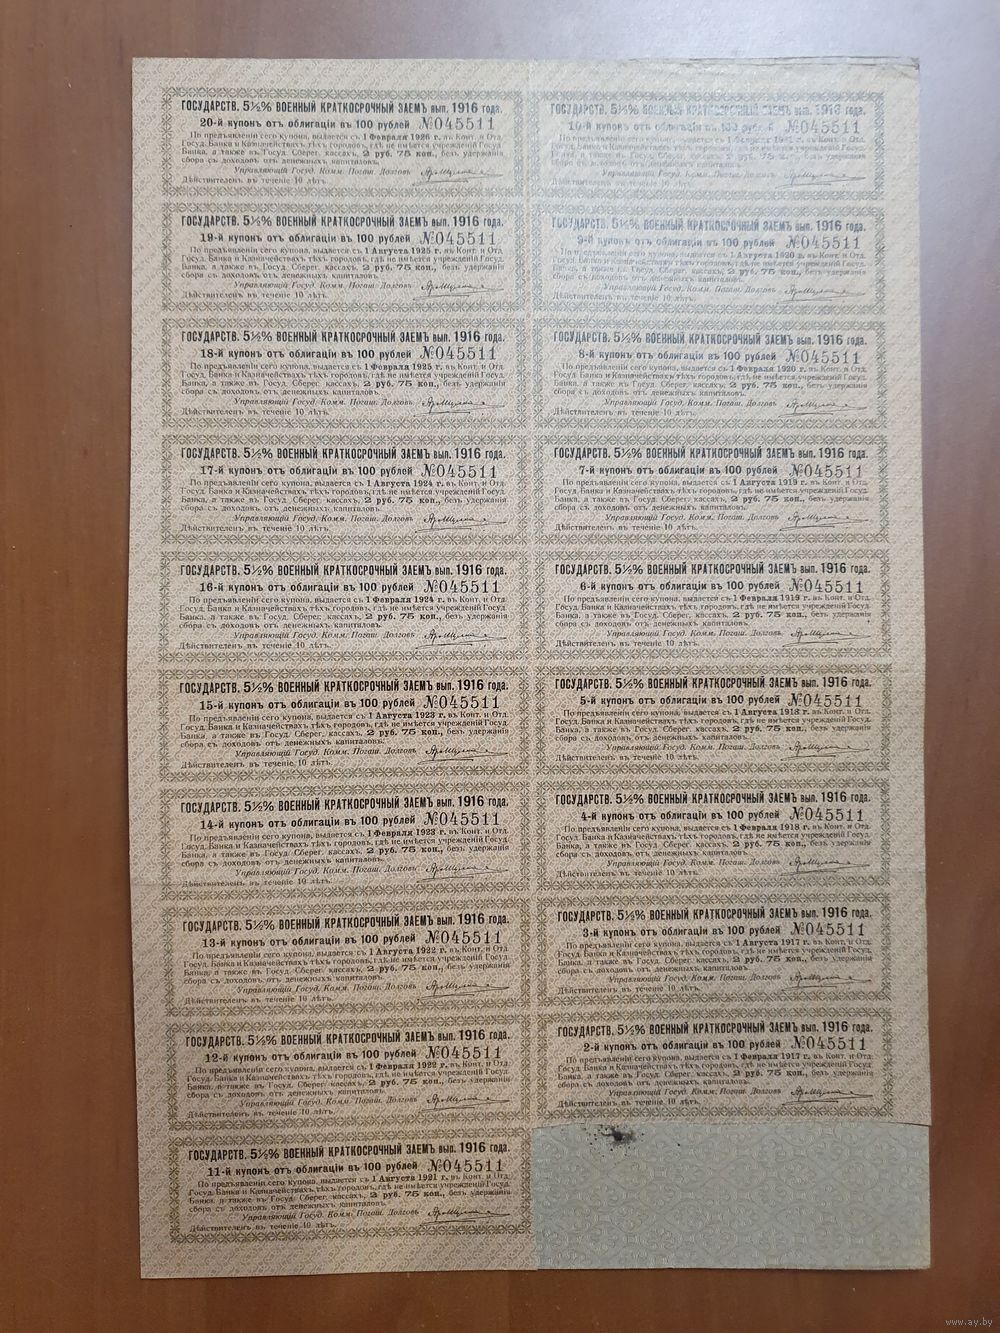 ГОСУДАРСТВ. 5½% ВОЕННЫЙ КРАТКОСРОЧНЫЙ ЗАЕМЪ вып. 1916 года.
20-й купонъ отъ облигаціи въ 100 рублей №045511
По предъявленіи сего купона, выдается съ 1 Февраля 1926 г. въ Конт. и Отд.
Госуд. Банка и Казначействахъ тѣхъ городовъ, гдѣ не имѣется учрежденій Госуд.
Банка, а также въ Госуд. Сберег. кассахъ, 2 руб. 75 коп., безъ удержанія
сбора съ доходовъ отъ денежныхъ капиталовъ.
Управляющій Госуд. Комм. Погаш. Долговъ
Дѣйствителенъ въ теченіе 10 лѣтъ.
ГОСУДАРСТВ. 5½% ВОЕННЫЙ КРАТКОСРОЧНЫЙ ЗАЕМЪ вып. 1916 года.
19-й купонъ отъ облигаціи въ 100 рублей №045511
По предъявленіи сего купона, выдается съ 1 Августа 1925 г. въ Конт. и Отд.
Госуд. Банка и Казначействахъ тѣхъ городовъ, гдѣ не имѣется учрежденій Госуд.
Банка, а также въ Госуд. Сберег. кассахъ, 2 руб. 75 коп., безъ удержанія
сбора съ доходовъ отъ денежныхъ капиталовъ.
Управляющій Госуд. Комм. Погаш. Долговъ
Дѣйствителенъ въ теченіе 10 лѣтъ.
ГОСУДАРСТВ. 5½% ВОЕННЫЙ КРАТКОСРОЧНЫЙ ЗАЕМЪ вып. 1916 года.
18-й купонъ отъ облигаціи въ 100 рублей №045511
По предъявленіи сего купона, выдается съ 1 Февраля 1925 г. въ Конт. и Отд.
Госуд. Банка и Казначействахъ тѣхъ городовъ, гдѣ не имѣется учрежденій Госуд.
Банка, а также въ Госуд. Сберег. кассахъ, 2 руб. 75 коп., безъ удержанія
сбора съ доходовъ отъ денежныхъ капиталовъ.
Управляющій Госуд. Комм. Погаш. Долговъ
Дѣйствителенъ въ теченіе 10 лѣтъ.
ГОСУДАРСТВ. 5½% ВОЕННЫЙ КРАТКОСРОЧНЫЙ ЗАЕМЪ вып. 1916 года.
17-й купонъ отъ облигаціи въ 100 рублей №045511
По предъявленіи сего купона, выдается съ 1 Августа 1924 г. въ Конт. и Отд.
Госуд. Банка и Казначействахъ тѣхъ городовъ, гдѣ не имѣется учрежденій Госуд.
Банка, а также въ Госуд. Сберег. кассахъ, 2 руб. 75 коп., безъ удержанія
сбора съ доходовъ отъ денежныхъ капиталовъ.
Управляющій Госуд. Комм. Погаш. Долговъ
Дѣйствителенъ въ теченіе 10 лѣтъ.
ГОСУДАРСТВ. 5½% ВОЕННЫЙ КРАТКОСРОЧНЫЙ ЗАЕМЪ вып. 1916 года.
16-й купонъ отъ облигаціи въ 100 рублей №045511
По предъявленіи сего купона, выдается съ 1 Февраля 1924 г. въ Конт. и Отд.
Госуд. Банка и Казначействахъ тѣхъ городовъ, гдѣ не имѣется учрежденій Госуд.
Банка, а также въ Госуд. Сберег. кассахъ, 2 руб. 75 коп., безъ удержанія
сбора съ доходовъ отъ денежныхъ капиталовъ.
Управляющій Госуд. Комм. Погаш. Долговъ
Дѣйствителенъ въ теченіе 10 лѣтъ.
ГОСУДАРСТВ. 5½% ВОЕННЫЙ КРАТКОСРОЧНЫЙ ЗАЕМЪ вып. 1916 года.
15-й купонъ отъ облигаціи въ 100 рублей №045511
По предъявленіи сего купона, выдается съ 1 Августа 1923 г. въ Конт. и Отд.
Госуд. Банка и Казначействахъ тѣхъ городовъ, гдѣ не имѣется учрежденій Госуд.
Банка, а также въ Госуд. Сберег. кассахъ, 2 руб. 75 коп., безъ удержанія
сбора съ доходовъ отъ денежныхъ капиталовъ.
Управляющій Госуд. Комм. Погаш. Долговъ
Дѣйствителенъ въ теченіе 10 лѣтъ.
ГОСУДАРСТВ. 5½% ВОЕННЫЙ КРАТКОСРОЧНЫЙ ЗАЕМЪ вып. 1916 года.
14-й купонъ отъ облигаціи въ 100 рублей №045511
По предъявленіи сего купона, выдается съ 1 Февраля 1923 г. въ Конт. и Отд.
Госуд. Банка и Казначействахъ тѣхъ городовъ, гдѣ не имѣется учрежденій Госуд.
Банка, а также въ Госуд. Сберег. кассахъ, 2 руб. 75 коп., безъ удержанія
сбора съ доходовъ отъ денежныхъ капиталовъ.
Управляющій Госуд. Комм. Погаш. Долговъ
Дѣйствителенъ въ теченіе 10 лѣтъ.
ГОСУДАРСТВ. 5½% ВОЕННЫЙ КРАТКОСРОЧНЫЙ ЗАЕМЪ вып. 1916 года.
13-й купонъ отъ облигаціи въ 100 рублей №045511
По предъявленіи сего купона, выдается съ 1 Августа 1922 г. въ Конт. и Отд.
Госуд. Банка и Казначействахъ тѣхъ городовъ, гдѣ не имѣется учрежденій Госуд.
Банка, а также въ Госуд. Сберег. кассахъ, 2 руб. 75 коп., безъ удержанія
сбора съ доходовъ отъ денежныхъ капиталовъ.
Управляющій Госуд. Комм. Погаш. Долговъ
Дѣйствителенъ въ теченіе 10 лѣтъ.
ГОСУДАРСТВ. 5½% ВОЕННЫЙ КРАТКОСРОЧНЫЙ ЗАЕМЪ вып. 1916 года.
12-й купонъ отъ облигаціи въ 100 рублей №045511
По предъявленіи сего купона, выдается съ 1 Февраля 1922 г. въ Конт. и Отд.
Госуд. Банка и Казначействахъ тѣхъ городовъ, гдѣ не имѣется учрежденій Госуд.
Банка, а также въ Госуд. Сберег. кассахъ, 2 руб. 75 коп., безъ удержанія
сбора съ доходовъ отъ денежныхъ капиталовъ.
Управляющій Госуд. Комм. Погаш. Долговъ
Дѣйствителенъ въ теченіе 10 лѣтъ.
ГОСУДАРСТВ. 5½% ВОЕННЫЙ КРАТКОСРОЧНЫЙ ЗАЕМЪ вып. 1916 года.
11-й купонъ отъ облигаціи въ 100 рублей №045511
По предъявленіи сего купона, выдается съ 1 Августа 1921 г. въ Конт. и Отд.
Госуд. Банка и Казначействахъ тѣхъ городовъ, гдѣ не имѣется учрежденій Госуд.
Банка, а также въ Госуд. Сберег. кассахъ, 2 руб. 75 коп., безъ удержанія
сбора съ доходовъ отъ денежныхъ капиталовъ.
Управляющій Госуд. Комм. Погаш. Долговъ
Дѣйствителенъ въ теченіе 10 лѣтъ.
ГОСУДАРСТВ. 5½% ВОЕННЫЙ КРАТКОСРОЧНЫЙ ЗАЕМЪ вып. 1916 года.
10-й купонъ отъ облигаціи въ 100 рублей №045511
По предъявленіи сего купона, выдается съ 1 въ Конт. и Отд.
Госуд. Банка и Казначействахъ тѣхъ городовъ, гдѣ не имѣется учрежденій Госуд.
Банка, а также въ Госуд. Сберег. кассахъ, 2 руб. 75 коп., безъ удержанія
сбора съ доходовъ отъ денежныхъ капиталовъ.
Управляющій Госуд. Комм. Погаш. Долговъ
Дѣйствителенъ въ теченіе 10 лѣтъ.
ГОСУДАРСТВ. 5½% ВОЕННЫЙ КРАТКОСРОЧНЫЙ ЗАЕМЪ вып. 1916 года.
9-й купонъ отъ облигаціи въ 100 рублей №045511
По предъявленіи сего купона, выдается съ 1 Августа 1920 г. въ Конт. и Отд.
Госуд. Банка и Казначействахъ тѣхъ городовъ, гдѣ не имѣется учрежденій Госуд.
Банка, а также въ Госуд. Сберег. кассахъ, 2 руб. 75 коп., безъ удержанія
сбора съ доходовъ отъ денежныхъ капиталовъ.
Управляющій Госуд. Комм. Погаш. Долговъ
Дѣйствителенъ въ теченіе 10 лѣтъ.
ГОСУДАРСТВ. 5½% ВОЕННЫЙ КРАТКОСРОЧНЫЙ ЗАЕМЪ вып. 1916 года.
8-й купонъ отъ облигаціи въ 100 рублей №045511
По предъявленіи сего купона, выдается съ 1 Февраля 1920 г. въ Конт. и Отд.
Госуд. Банка и Казначействахъ тѣхъ городовъ, гдѣ не имѣется учрежденій Госуд.
Банка, а также въ Госуд. Сберег. кассахъ, 2 руб. 75 коп., безъ удержанія
сбора съ доходовъ отъ денежныхъ капиталовъ.
Управляющій Госуд. Комм. Погаш. Долговъ
Дѣйствителенъ въ теченіе 10 лѣтъ.
ГОСУДАРСТВ. 5½% ВОЕННЫЙ КРАТКОСРОЧНЫЙ ЗАЕМЪ вып. 1916 года.
7-й купонъ отъ облигаціи въ 100 рублей №045511
По предъявленіи сего купона, выдается съ 1 Августа 1919 г. въ Конт. и Отд.
Госуд. Банка и Казначействахъ тѣхъ городовъ, гдѣ не имѣется учрежденій Госуд.
Банка, а также въ Госуд. Сберег. кассахъ, 2 руб. 75 коп., безъ удержанія
сбора съ доходовъ отъ денежныхъ капиталовъ.
Управляющій Госуд. Комм. Погаш. Долговъ
Дѣйствителенъ въ теченіе 10 лѣтъ.
ГОСУДАРСТВ. 5½% ВОЕННЫЙ КРАТКОСРОЧНЫЙ ЗАЕМЪ вып. 1916 года.
6-й купонъ отъ облигаціи въ 100 рублей №045511
По предъявленіи сего купона, выдается съ 1 Февраля 1919 г. въ Конт. и Отд.
Госуд. Банка и Казначействахъ тѣхъ городовъ, гдѣ не имѣется учрежденій Госуд.
Банка, а также въ Госуд. Сберег. кассахъ, 2 руб. 75 коп., безъ удержанія
сбора съ доходовъ отъ денежныхъ капиталовъ.
Управляющій Госуд. Комм. Погаш. Долговъ
Дѣйствителенъ въ теченіе 10 лѣтъ.
ГОСУДАРСТВ. 5½% ВОЕННЫЙ КРАТКОСРОЧНЫЙ ЗАЕМЪ вып. 1916 года.
5-й купонъ отъ облигаціи въ 100 рублей №045511
По предъявленіи сего купона, выдается съ 1 Августа 1918 г. въ Конт. и Отд.
Госуд. Банка и Казначействахъ тѣхъ городовъ, гдѣ не имѣется учрежденій Госуд.
Банка, а также въ Госуд. Сберег. кассахъ, 2 руб. 75 коп., безъ удержанія
сбора съ доходовъ отъ денежныхъ капиталовъ.
Управляющій Госуд. Комм. Погаш. Долговъ
Дѣйствителенъ въ теченіе 10 лѣтъ.
ГОСУДАРСТВ. 5½% ВОЕННЫЙ КРАТКОСРОЧНЫЙ ЗАЕМЪ вып. 1916 года.
4-й купонъ отъ облигаціи въ 100 рублей №045511
По предъявленіи сего купона, выдается съ 1 Февраля 1918 г. въ Конт. и Отд.
Госуд. Банка и Казначействахъ тѣхъ городовъ, гдѣ не имѣется учрежденій Госуд.
Банка, а также въ Госуд. Сберег. кассахъ, 2 руб. 75 коп., безъ удержанія
сбора съ доходовъ отъ денежныхъ капиталовъ.
Управляющій Госуд. Комм. Погаш. Долговъ
Дѣйствителенъ въ теченіе 10 лѣтъ.
ГОСУДАРСТВ. 5½% ВОЕННЫЙ КРАТКОСРОЧНЫЙ ЗАЕМЪ вып. 1916 года.
3-й купонъ отъ облигаціи въ 100 рублей №045511
По предъявленіи сего купона, выдается съ 1 Августа 1917 г. въ Конт. и Отд.
Госуд. Банка и Казначействахъ тѣхъ городовъ, гдѣ не имѣется учрежденій Госуд.
Банка, а также въ Госуд. Сберег. кассахъ, 2 руб. 75 коп., безъ удержанія
сбора съ доходовъ отъ денежныхъ капиталовъ.
Управляющій Госуд. Комм. Погаш. Долговъ
Дѣйствителенъ въ теченіе 10 лѣтъ.
ГОСУДАРСТВ. 5½% ВОЕННЫЙ КРАТКОСРОЧНЫЙ ЗАЕМЪ вып. 1916 года.
2-й купонъ отъ облигаціи въ 100 рублей №045511
По предъявленіи сего купона, выдается съ 1 Февраля 1917 г. въ Конт. и Отд.
Госуд. Банка и Казначействахъ тѣхъ городовъ, гдѣ не имѣется учрежденій Госуд.
Банка, а также въ Госуд. Сберег. кассахъ, 2 руб. 75 коп., безъ удержанія
сбора съ доходовъ отъ денежныхъ капиталовъ.
Управляющій Госуд. Комм. Погаш. Долговъ
Дѣйствителенъ въ теченіе 10 лѣтъ.
www.ay.by